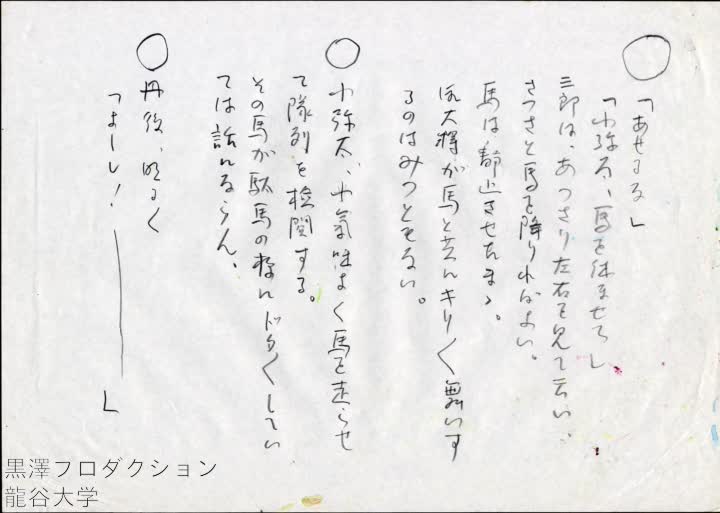 ○
「あせるな」
「小弥太、馬を休ませろ」
三郎は、あっさり左右を見て云い、
さっさと馬を降りればよい。
馬は静止させたまゝ。
侍大将が馬と共にキリ〱舞いす
るのはみっともない。
○
小弥太、小気味よく馬を走らせ
て隊列を検閲する。
その馬が駄馬の様にドタ〱してい
ては話にならん、
○
丹後、明るく
「よーし!――」
黒澤プロダクション
龍谷大学